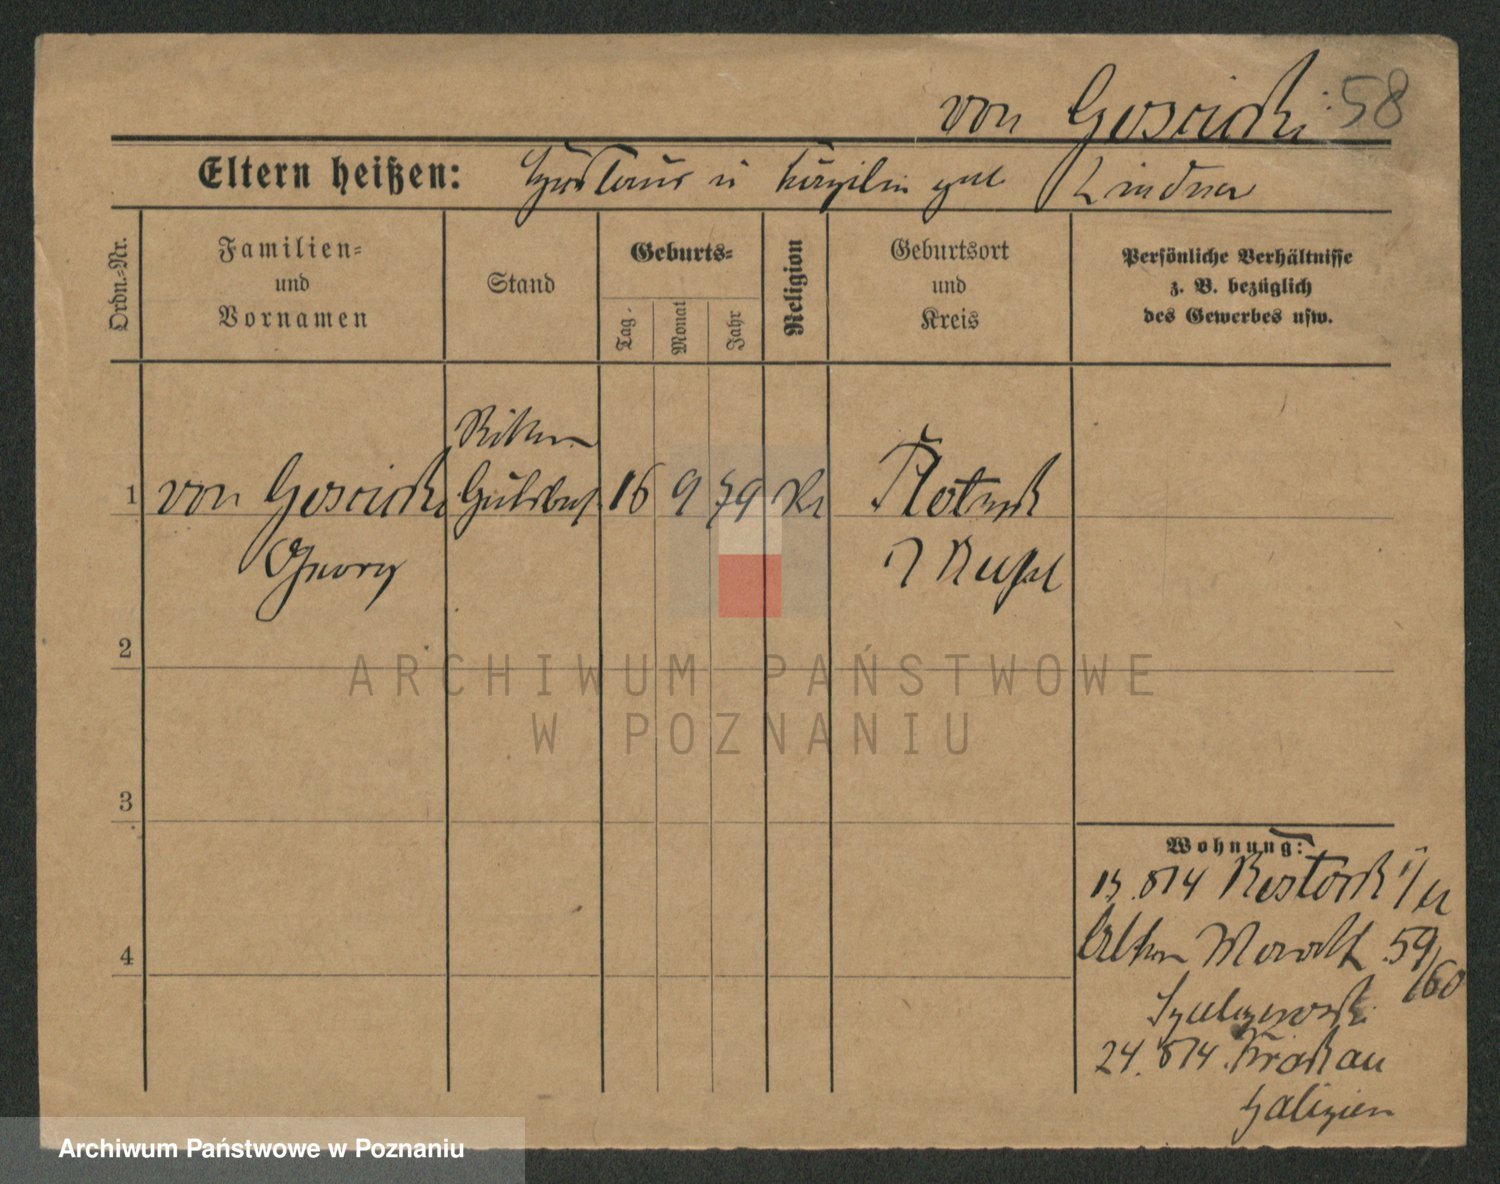 von Goscicki 58
Eltern heißen: Gustaus u geb Lindner
Ordn.-Nr.
Familien-
und
Vornamen
Stand
Geburts-
Tag.
Monat
Jahr
Religion
Geburtsort
und
Kreis
Persönliche Verhältnisse
z. B. bezüglich
des Gewerbes usw.
Ritter
1 von Goscicki Gutsbes 16 9 79
Georg
2
3
4
Wohnung:
15.814
Alter Markt 59/60
24.814. Krakau
Galizien
ARCHIWUM PAŃSTWOWE
W POZNANIU
Archiwum Państwowe w Poznaniu